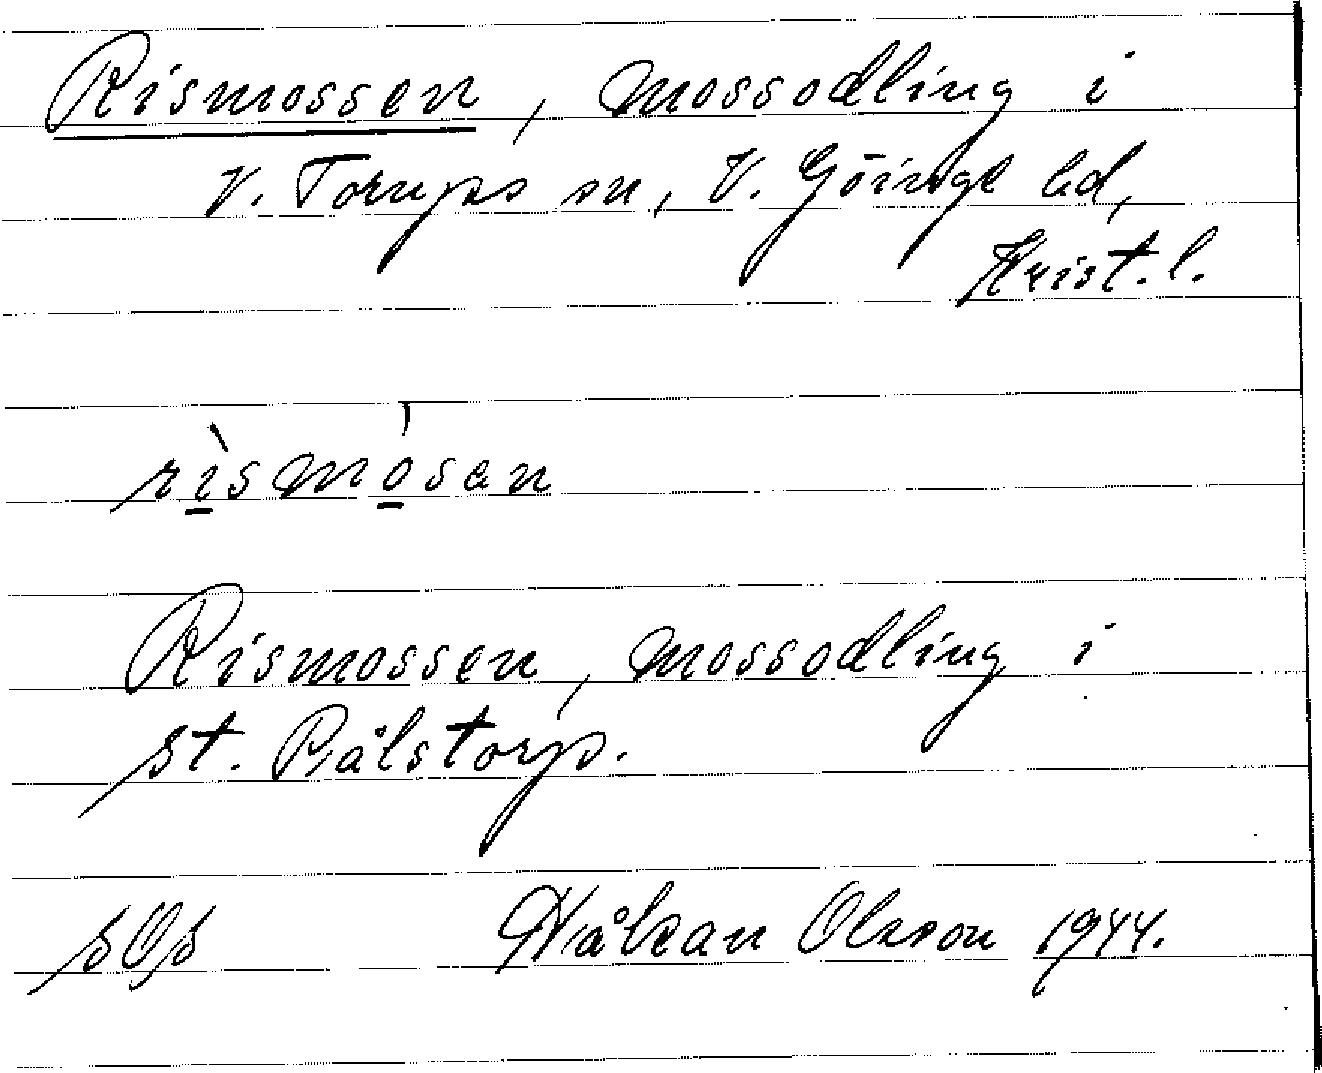 Rismossen, mossodling i
V. Torups sn, V. Göinge hd,
Krist. l.
rìsmósan
Rismossen, mossodling i
st. Bålstorp.
Håkan Olsson 1944.